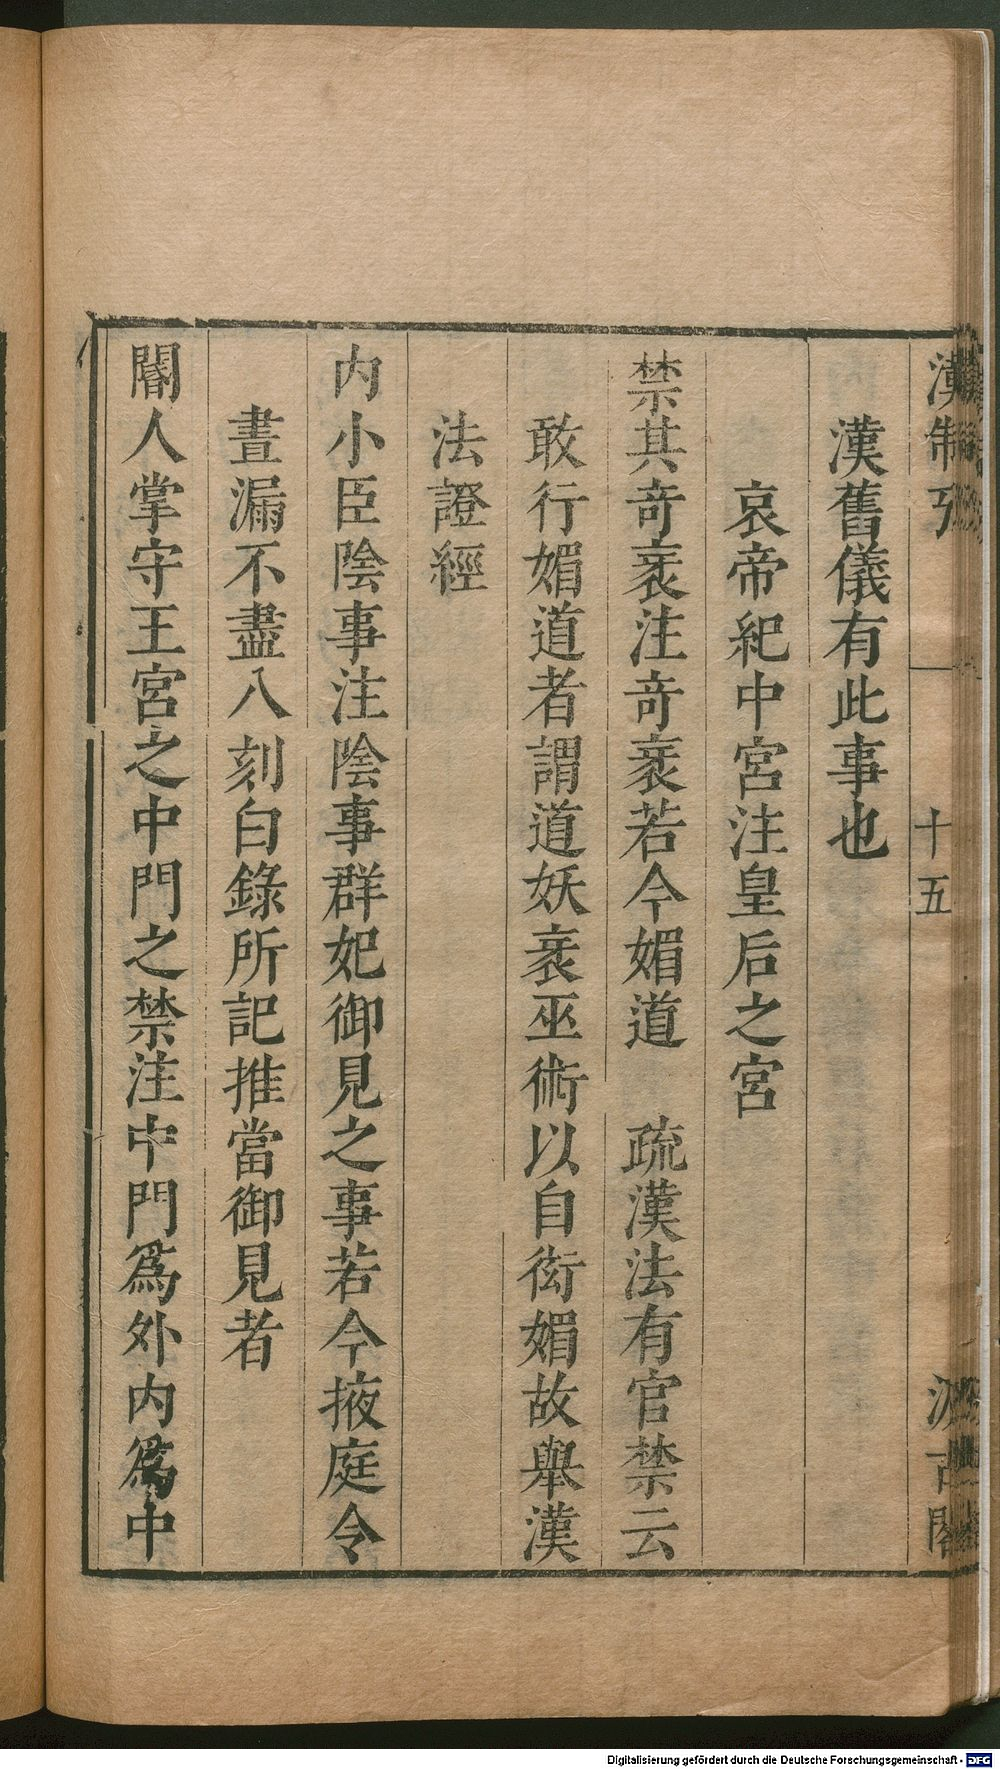 漢制攷 一 十五 汲古閣
漢舊儀有此事也
哀帝紀中宮注皇后之宮
禁其奇衺注奇衺若今媚道 疏漢法有官禁云
敢行媚道者謂道妖衺巫術以自衒媚故舉漢
法證經
内小臣陰事注陰事群妃御見之事若今掖庭令
晝漏不盡八刻白錄所記推當御見者
閽人掌守王宮之中門之禁注中門爲外内爲中
Digitalisierung gefördert durch die Deutsche Forschungsgemeinschaft - DFG